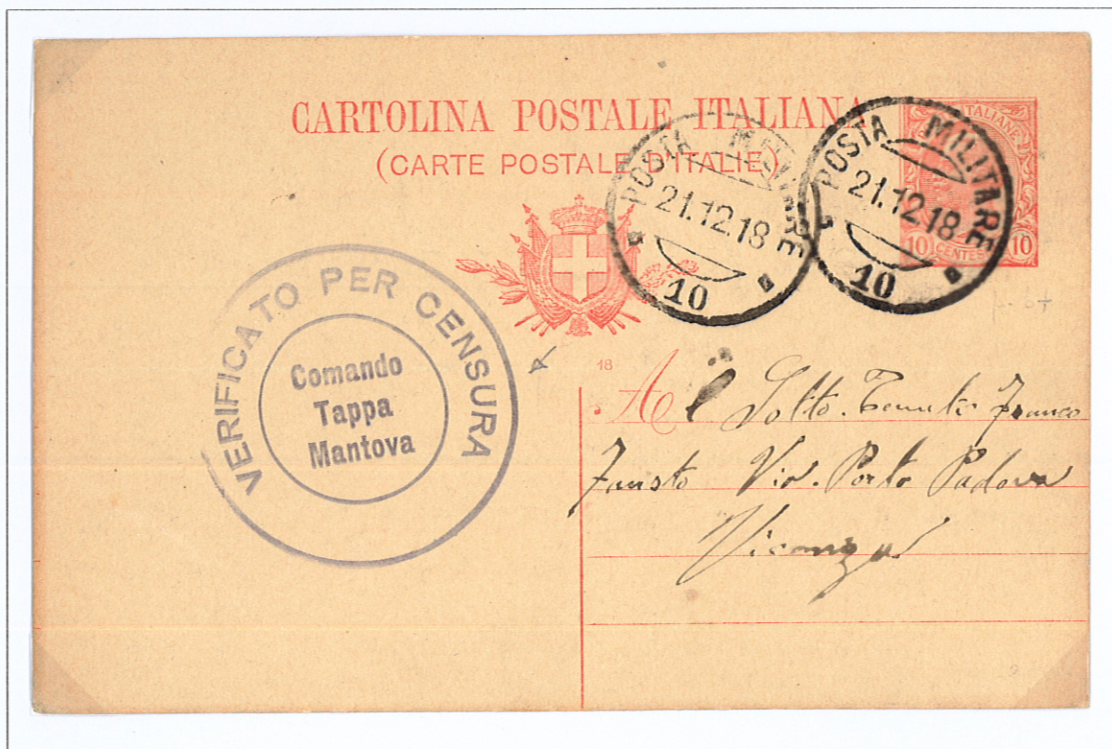 CARTOLINA POSTALE ITALIANA
(CARTE POSTALE D'ITALIE)
POSTA MILITARE
21.12.18
10
POSTA MILITARE
21.12.18
10
ITALIANE
10 CENTES 10
VERIFICATO PER CENSURA
Comando
Tappa
Mantova
18
Al Sotto. Franco
Fausto Via. Porto Padova
Vicenza